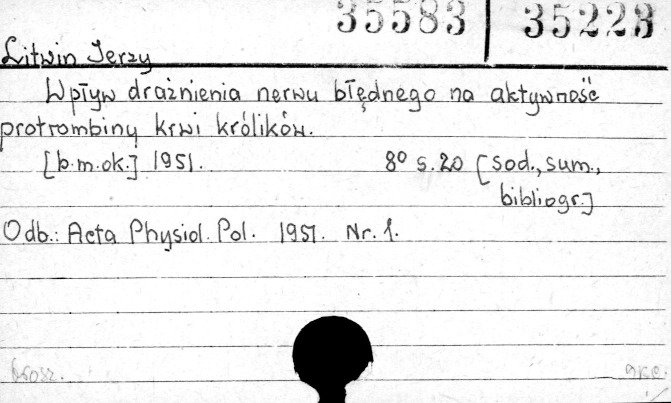 35583 35223
Litwin Jerzy
Wpływ drażnienia nerwu błędnego na aktywność
protrombiny krwi królików.
[b.m.ok.] 1951. 8° s.20 [sod., sum.,
bibliogr.]
Odb.: Acta Physiol. Pol. 1951. Nr. 1.
brosz.